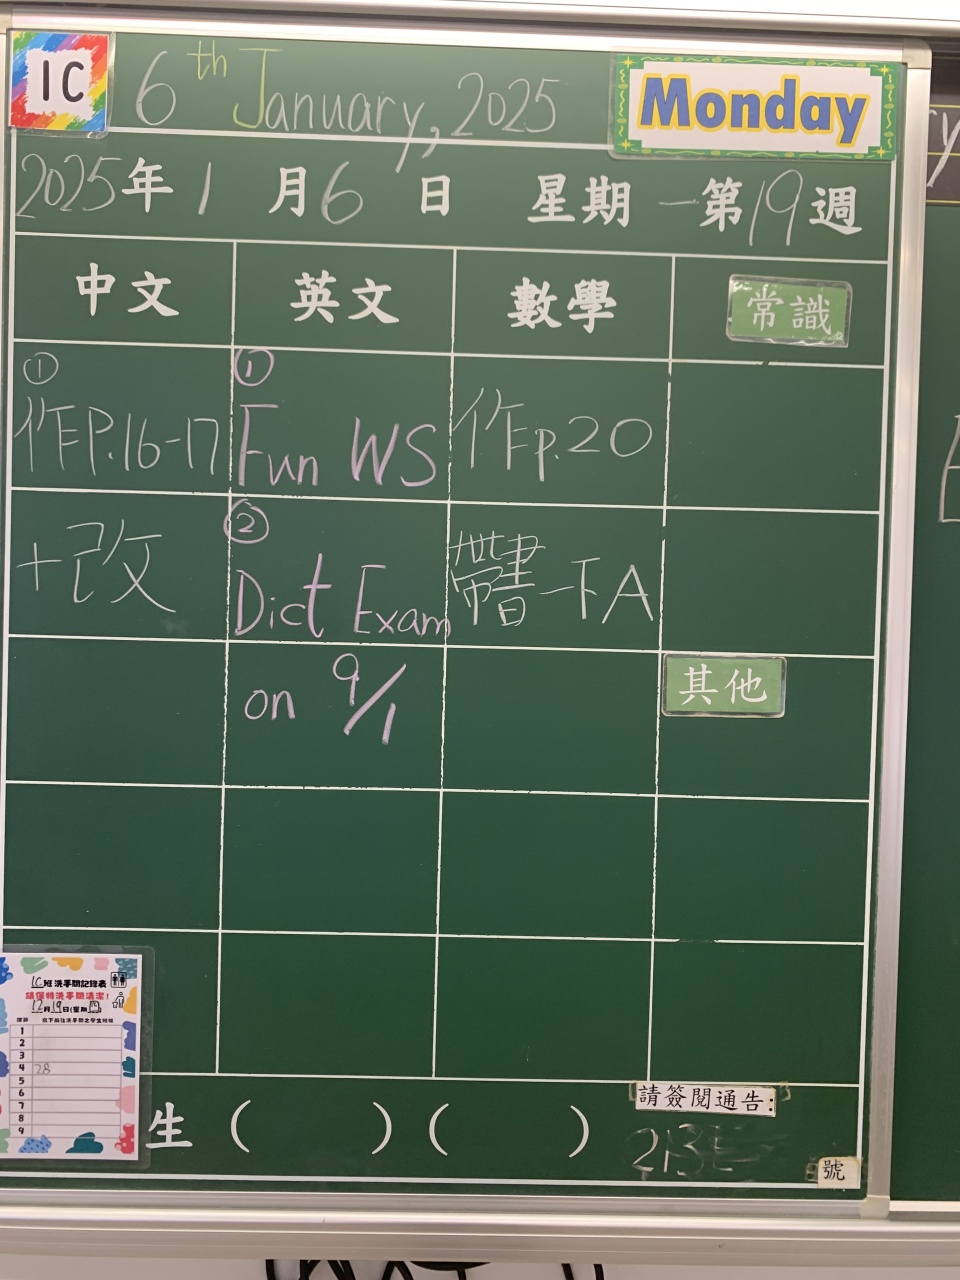 1C
6th January, 2025
Monday
2025年1月6日 星期一第19週
中文 英文 數學 常識
① ①
作P.16-17 Fun WS 作p.20
②
+改 Dict Exam 帶書一下A
on 9/1 其他
1C班洗手間記錄表
請保持洗手間清潔!
12月19日(星期四)
1
2
3
4 28
5
6
7
8
9
生 ( ) ( )
請簽閱通告:
號